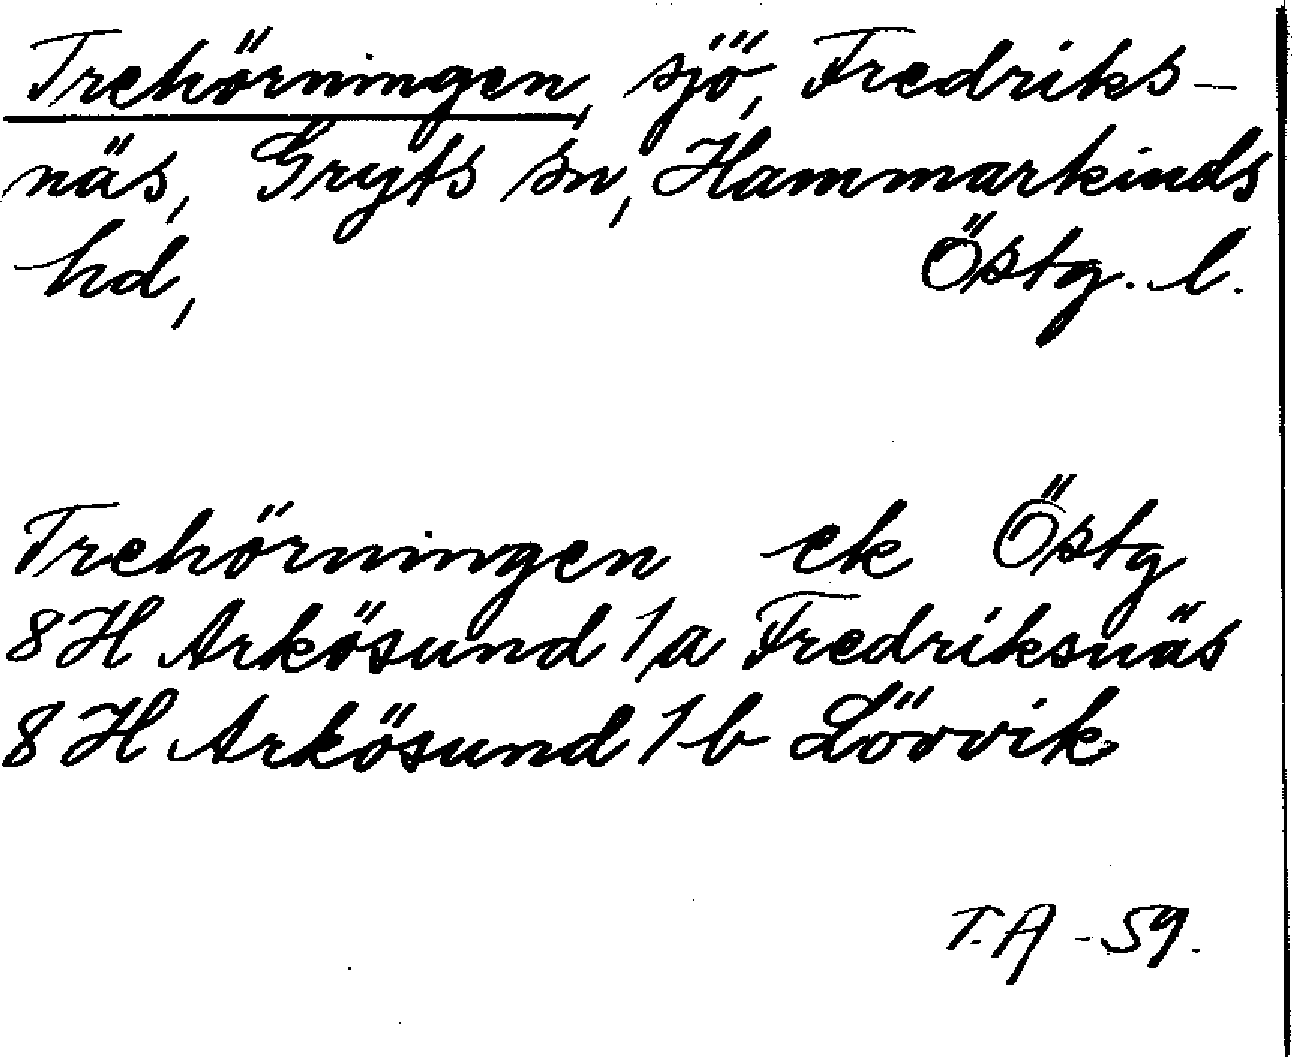 Trehörningen, sjö, Fredriks-
näs, Gryts sn, Hammarkinds
hd, Östg. l.
Trehörningen ek Östg
8H Arkösund 1a Fredriksnäs
8H Arkösund 1b Lövvik
T.A -59.